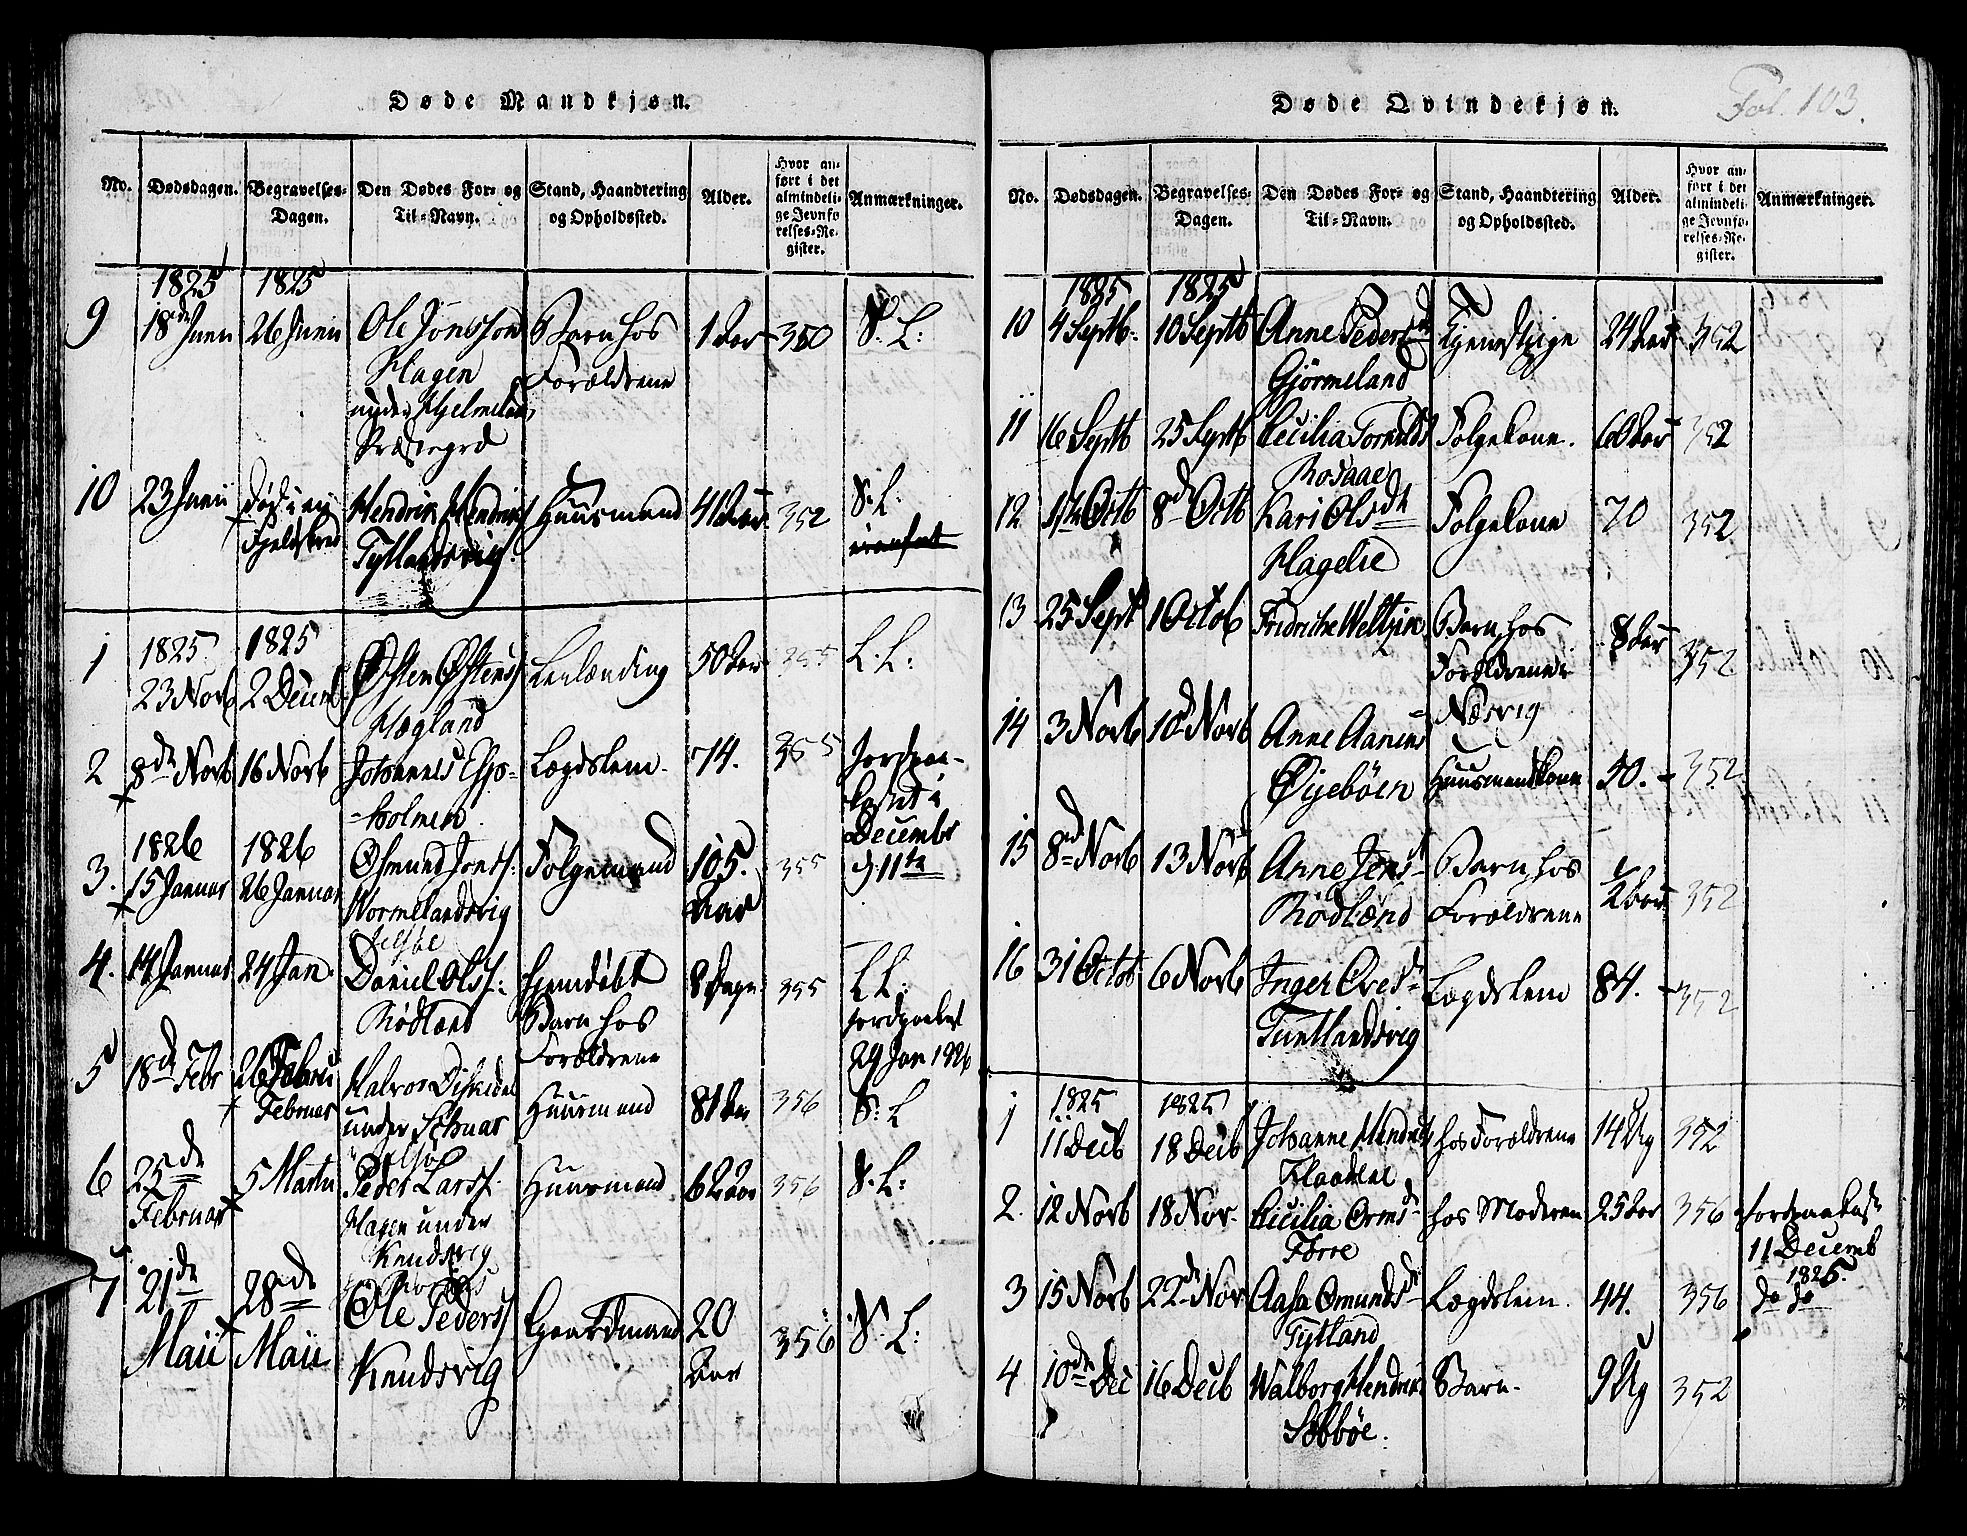 Døde Mandkjøn.
No. Dødsdagen. Begravelses-Dagen. Den Dødes For- og Til-Navn. Stand, Haandtering og Opholdssted. Alder. Hvor anført i det almindelige Jevnførelses-Register. Anmærkninger.
1825 1825
9 18de Junii 26 Junii Ole Jonsson Barn hos 1 Aar 350 S. L:
Hagen Forældrene
under Hjelmelands
Præstegrd
10 23 Junii død i en Hendrik Hendriks Huusmand 41 Aar 352 S. L.
Fjeldskred Tytlandsvig
1 1825 1825
23 Novb 2 Decemb Østen Østens Leilænding 50 Aar 355 L. L:
Hægland
2 8de Novb 16 Novb Johannes Espe- Lægdslem 74. 355 Jordpaa-
holmen. kastet i
Decembr
d. 11te
1826 1826
3. 15 Januar 26 Januar Osmund Jonss: Folgemand 105. Aar 355
Wormelandsvig
4. 14 Januar 24 Jan. Daniel Olss: hjemdøbt 8 Dage 355 L L:
Rødland Barn hos jordpaakast
Forældrene 29 Jan 1826
5 18de Febr 26 Februar Halvor Huusmand 81 Aar 356 S: L
under
6 25de Februar 5 Martii Peder Larss. Huusmand 62 Aar 356 S. L:
Hagen under
Knudsvig
7 21de Maii 28de Maii Ole Pederss Gaardmand 20 Aar 356 S. L:
Knudsvig
Døde Qvindekjøn. Fol. 103.
No. Dødsdagen. Begravelses-Dagen. Den Dødes For- og Til-Navn. Stand, Haandtering og Opholdssted. Alder. Hvor anført i det almindelige Jevnførelses-Register. Anmærkninger.
1825 1825
10 4 Septb. 10 Septb Anne Pedersd Tjenestpige 24 Aar 352
Gjørmeland
11 16 Septb 25 Septb Cecilia Tormodsd Folgekone. 60 Aar 352
Rosaae
12 1te Octb 8de Octb Kari Olsdt Folgekone 70 352
Hagelie
13 25 Sept 1 Octob Fridriche Weltzin Barn hos 8 Aar 352
Forældrene i
Næsvig
14 3 Novb 10d Novb Anne Aanens Huusmandskone 50. 352
Øijebøen
15 8de Novb 13 Novb Anne Jensd Barn hos 1/2 Aar 352
Rødland Forældrene
16 31 Octob 6 Novb Inger Oves d Lægdslem 84. 352
Tuntlandsvig
1825 1825
1 11 Decb 18 Decb Johanne Hendriks hos Forældrene 14 Ug 352
2. 12 Novb 18 Nov. Cicilia Ormsd hos Moderen 25 Aar 356 jordpaakast
Førre 11 Decemb
1825.
3 15 Novb 22de Nov Aasa Omundsd Lægdslem. 44. 356 do do
Tytland
4 10de Dec 16 Decb Walborg Hendriks Barn. 9 Ug 352
Sæbbøe.